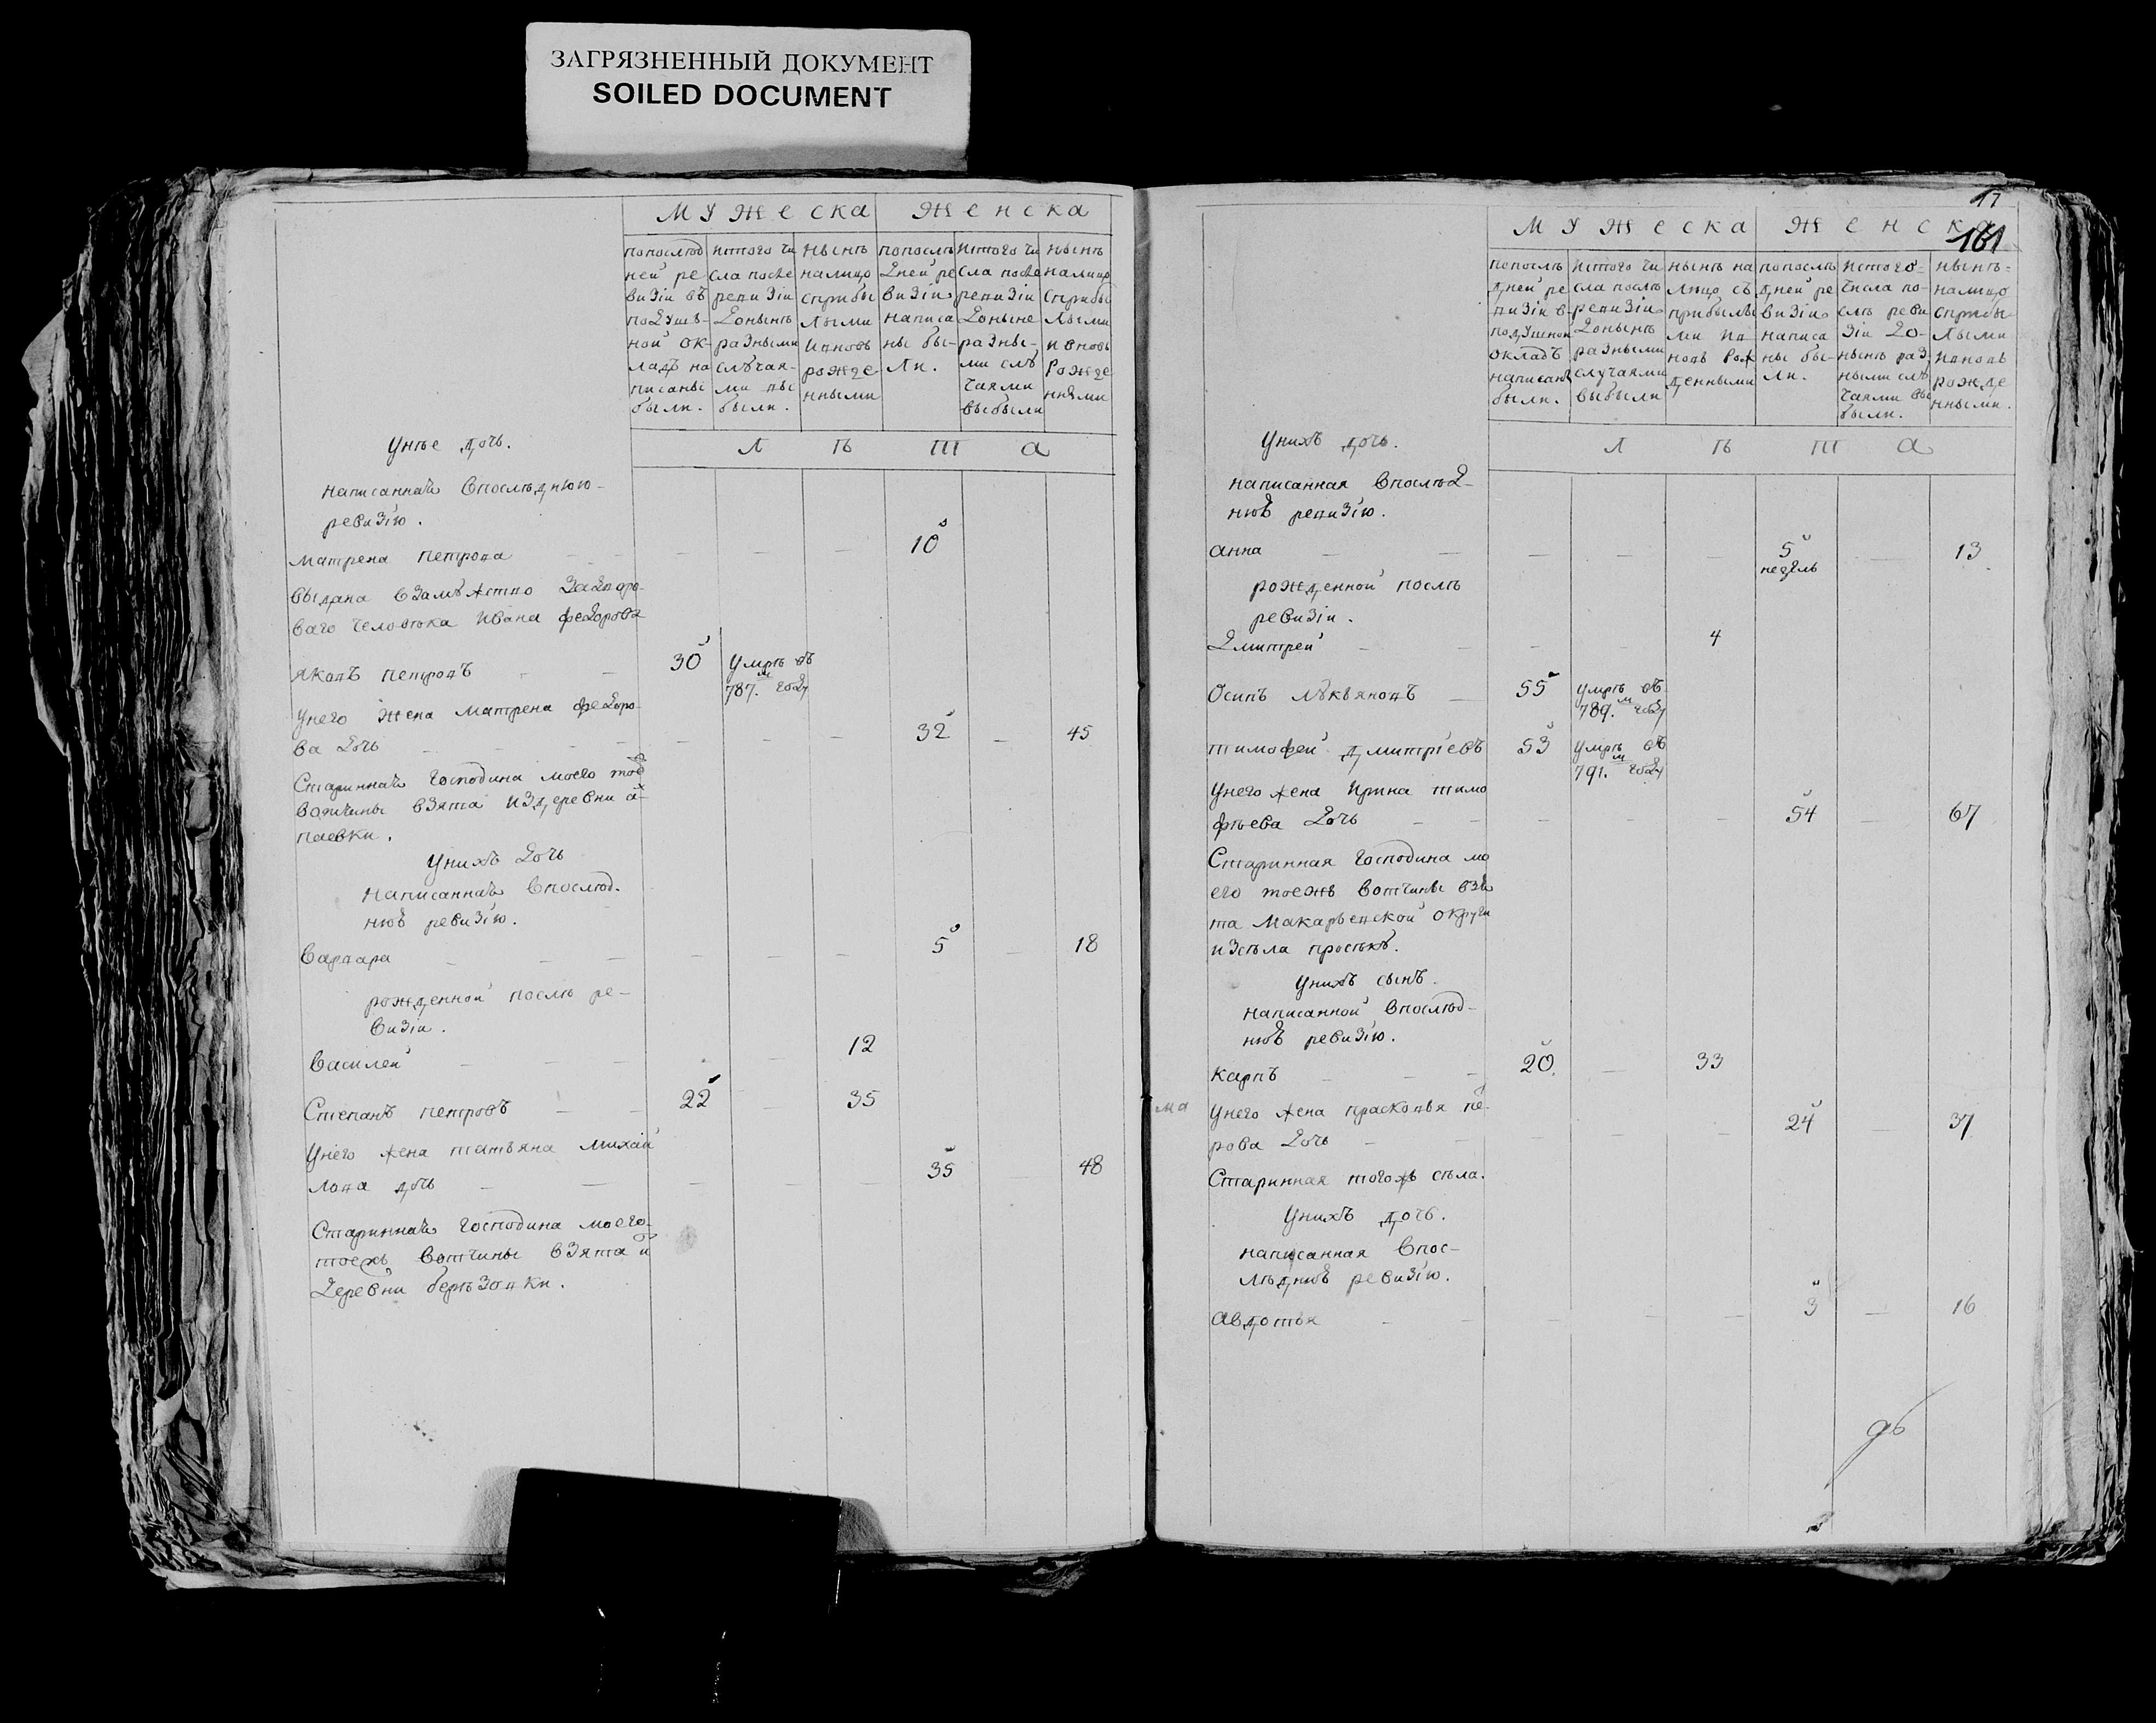 ЗАГРЯЗНЕННЫЙ ДОКУМЕНТ
SOILED DOCUMENT
Мужеска Женска
попослѣд
ней ре
визіи въ
подуш-
ной ок-
ладъ на
писаны
были.
изтого чи
сла после
ревизіи
донынѣ
разными
случая-
ми вы
были.
нынѣ
налицо
сприбы
лыми
ивновь
рожде
нными
попослѣ
дней ре
визіи
написа
ны бы-
ли.
изтого чи
сла после
ревизіи
доныне
разны-
ми слу
чаями
выбыли
нынѣ
налицо
сприбы
лыми
ивновь
рожде
нными
лѣта
унѣе дочь.
написанная впослѣднюю-
ревизію.
матрена петрова — — — — — 10
выдана взамужство
ваго человѣка ивана федорова
яковъ петровъ — — 30 умръ въ
787.м году
унего жена матрена федоро-
ва дочь — — — — — — 32 — 45
Старинная господина моего
вотчины взята издеревни а-
паевки.
унихъ дочь
написанная впослѣд-
нюю ревизію.
варвара — — — — — — 5 — 18
рожденной послѣ ре-
визіи.
василей — — — — 12
Степанъ петровъ — — 22 — 35
унего жена татьяна михай
лова дочь — — — — — 35 — 48
Старинная господина моего-
тоежъ вотчины взята и
деревни берѣзовки.
17
161
Мужеска Женска
попослѣ
дней ре
визіи в-
подушной
окладъ
написаны
были.
изтого чи
сла послѣ
ревизіи
донынѣ
разными
случаями
выбыли
нынѣ на
лицо съ
прибылы
ми ив
новь рож
денными
попослѣ
дней ре
визіи
написа
ны бы-
ли.
изтого-
числа по-
слѣ реви
зіи до-
нынѣ раз
ными слу
чаями вы
были.
нынѣ-
налицо
сприбы
лыми
ивновь
рожде
нными.
лѣта
унихъ дочь.
написанная впослѣд-
нюю ревизію.
анна — — — — — 5
недѣль — 13
рожденной послѣ
ревизіи.
Дмитрей — — — 4
Осипъ лукьяновъ — 55 умръ въ
789.м году
тимофей дмитріевъ 53 умръ въ
791.м году
унего жена ирина тимо
фѣева дочь — — — — — 54 — 67
Старинная господина мо
его тоежъ вотчины взя
та макарьевской округи
изсѣла просѣкъ.
унихъ сынъ.
написанной впослѣд-
нюю ревизію.
карпъ — — — 20. — 33
унего жена прасковья пе-
рова дочь — — — — — 24 — 37
Старинная тогожъ сѣла.
унихъ дочь.
написанная впос-
лѣднюю ревизію.
авдотья — — — — — 3 — 16